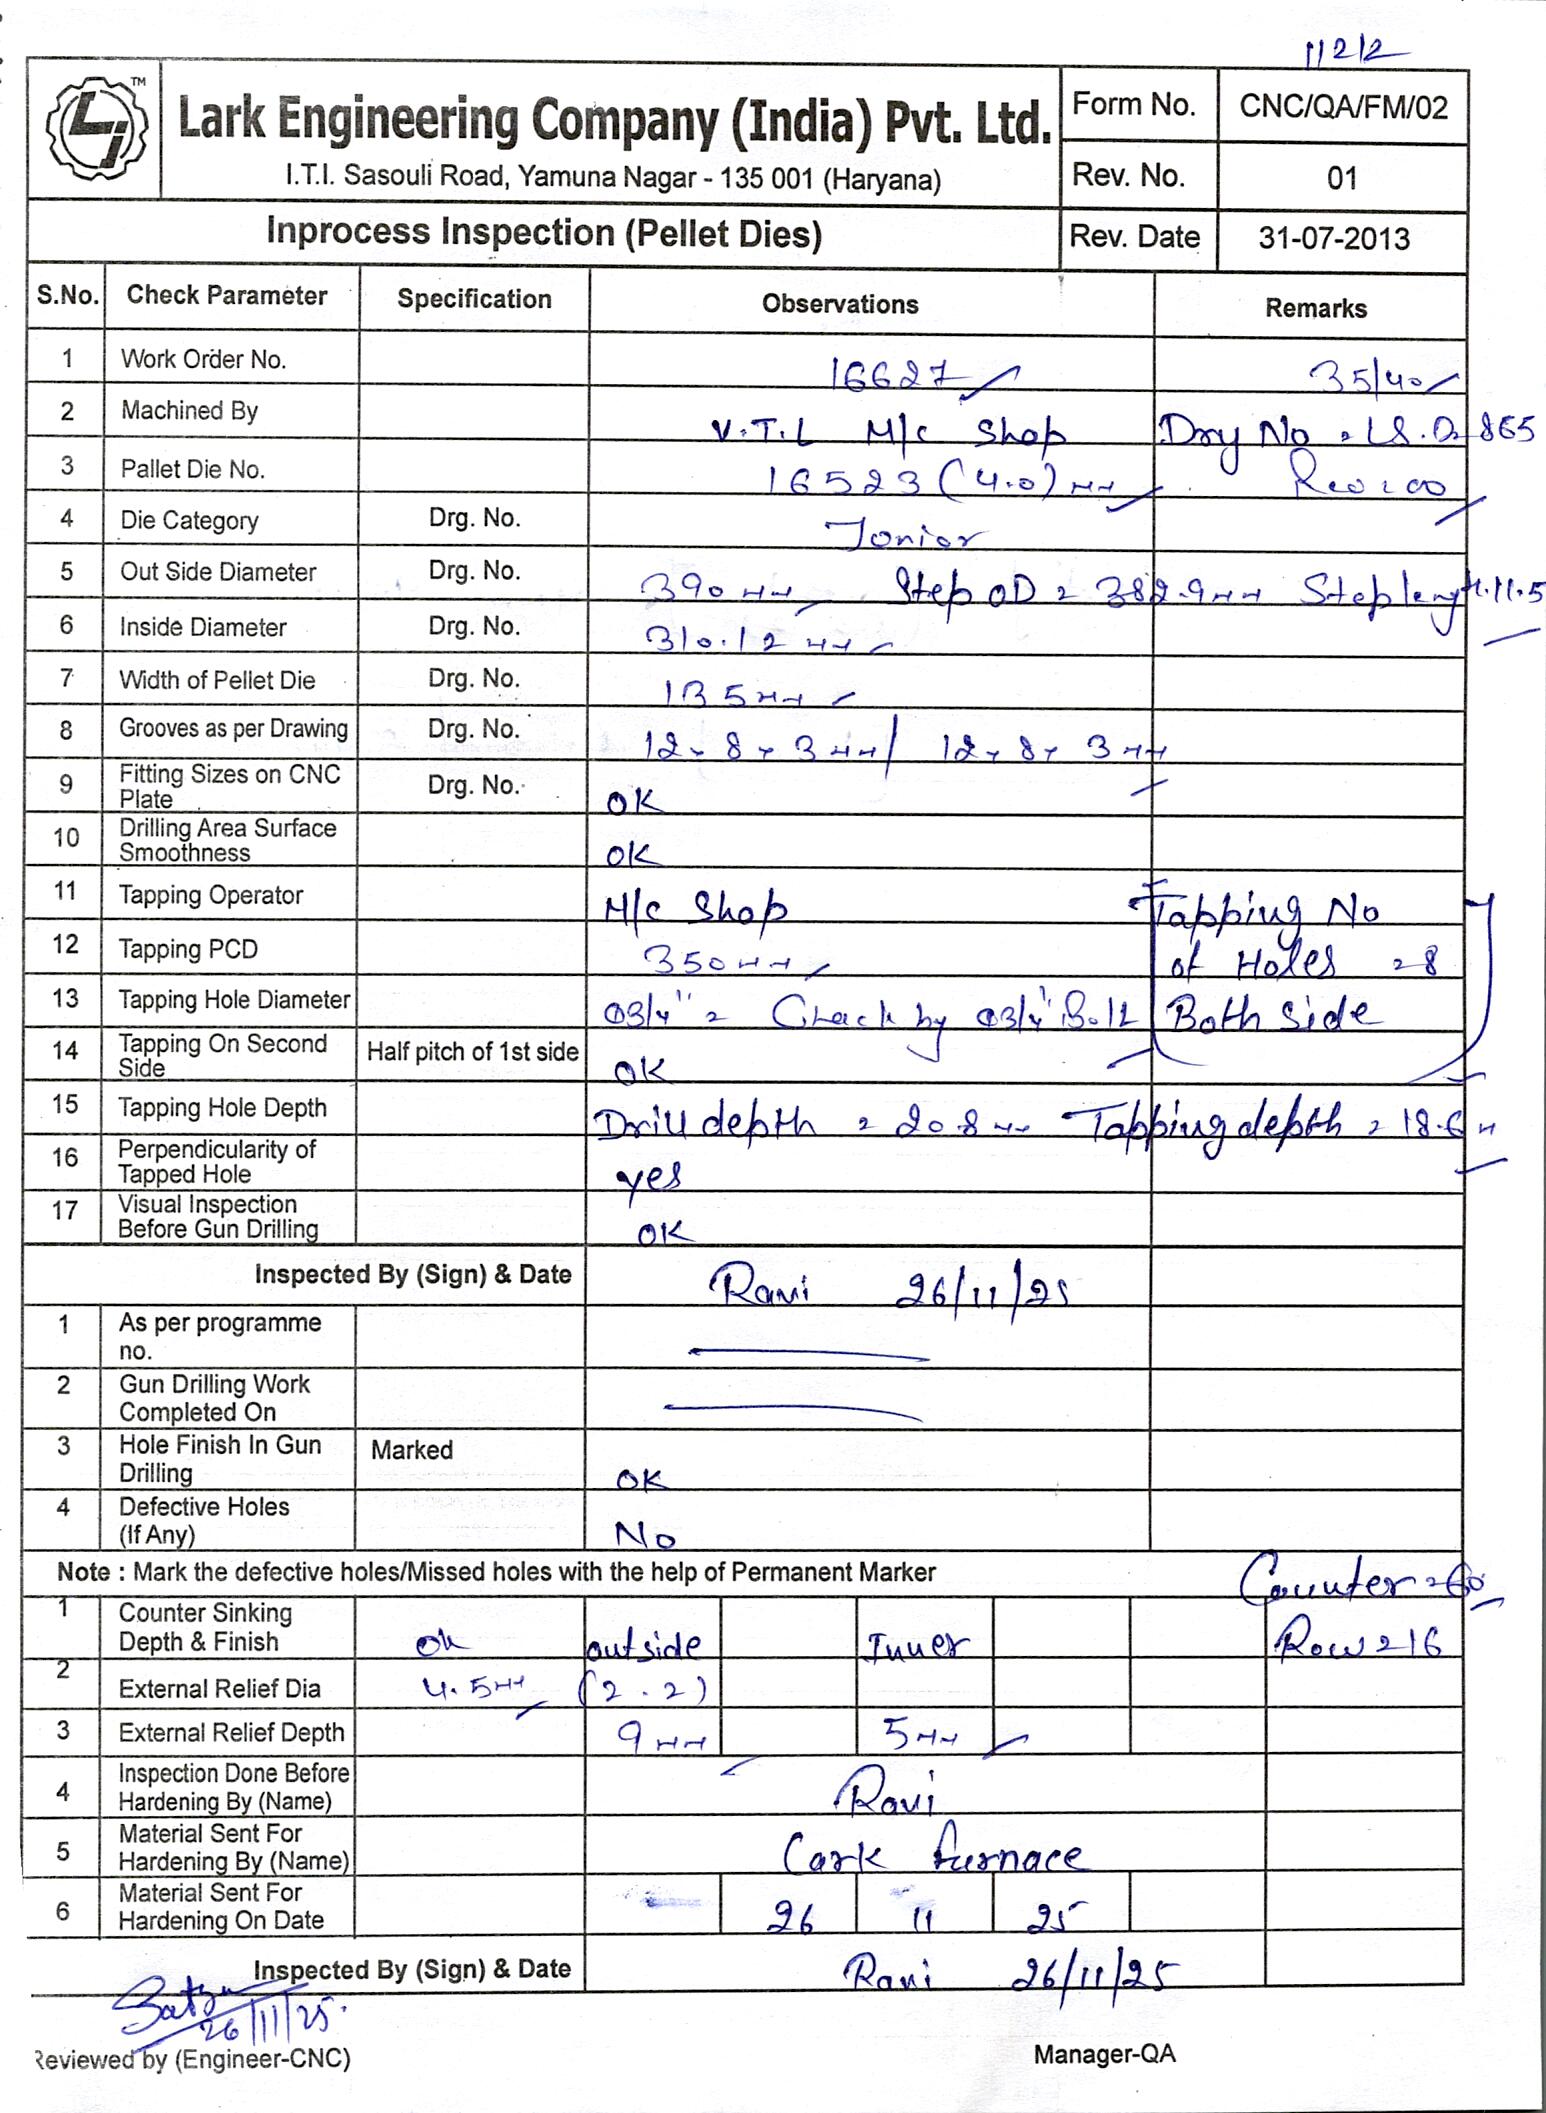 11212
TM
Lark Engineering Company (India) Pvt. Ltd.
I.T.I. Sasouli Road, Yamuna Nagar - 135 001 (Haryana)
Form No. CNC/QA/FM/02
Rev. No. 01
Inprocess Inspection (Pellet Dies) Rev. Date 31-07-2013
S.No. Check Parameter Specification Observations Remarks
1 Work Order No. 16627 35/40
2 Machined By V.T.L M/c Shop Drg No = LS.D 865
3 Pallet Die No. 16523 (4.0) mm Rev: 00
4 Die Category Drg. No. Jonior
5 Out Side Diameter Drg. No. 390 mm Step OD = 382.9 mm Step length. 11.5
6 Inside Diameter Drg. No. 310.12 mm
7 Width of Pellet Die Drg. No. 135 mm
8 Grooves as per Drawing Drg. No. 12 x 8 x 3 mm / 12 x 8 x 3 mm
9 Fitting Sizes on CNC Plate Drg. No. OK
10 Drilling Area Surface Smoothness OK
11 Tapping Operator M/c Shop Tapping No
12 Tapping PCD 350 mm of Holes = 8
13 Tapping Hole Diameter Ø3/4" = Chack by Ø3/4" Bolt Both side
14 Tapping On Second Side Half pitch of 1st side OK
15 Tapping Hole Depth Drill depth = 20.8 mm Tapping depth = 18.6 m
16 Perpendicularity of Tapped Hole yes
17 Visual Inspection Before Gun Drilling OK
Inspected By (Sign) & Date Ravi 26/11/25
1 As per programme no.
2 Gun Drilling Work Completed On
3 Hole Finish In Gun Drilling Marked OK
4 Defective Holes (If Any) No
Note : Mark the defective holes/Missed holes with the help of Permanent Marker Counter = 60
1 Counter Sinking Depth & Finish ok outside Inner Row = 16
2 External Relief Dia 4.5 mm (2.2)
3 External Relief Depth 9 mm 5 mm
4 Inspection Done Before Hardening By (Name) Ravi
5 Material Sent For Hardening By (Name) Cark furnace
6 Material Sent For Hardening On Date 26 11 25
Inspected By (Sign) & Date Ravi 26/11/25
26/11/25.
Reviewed by (Engineer-CNC) Manager-QA